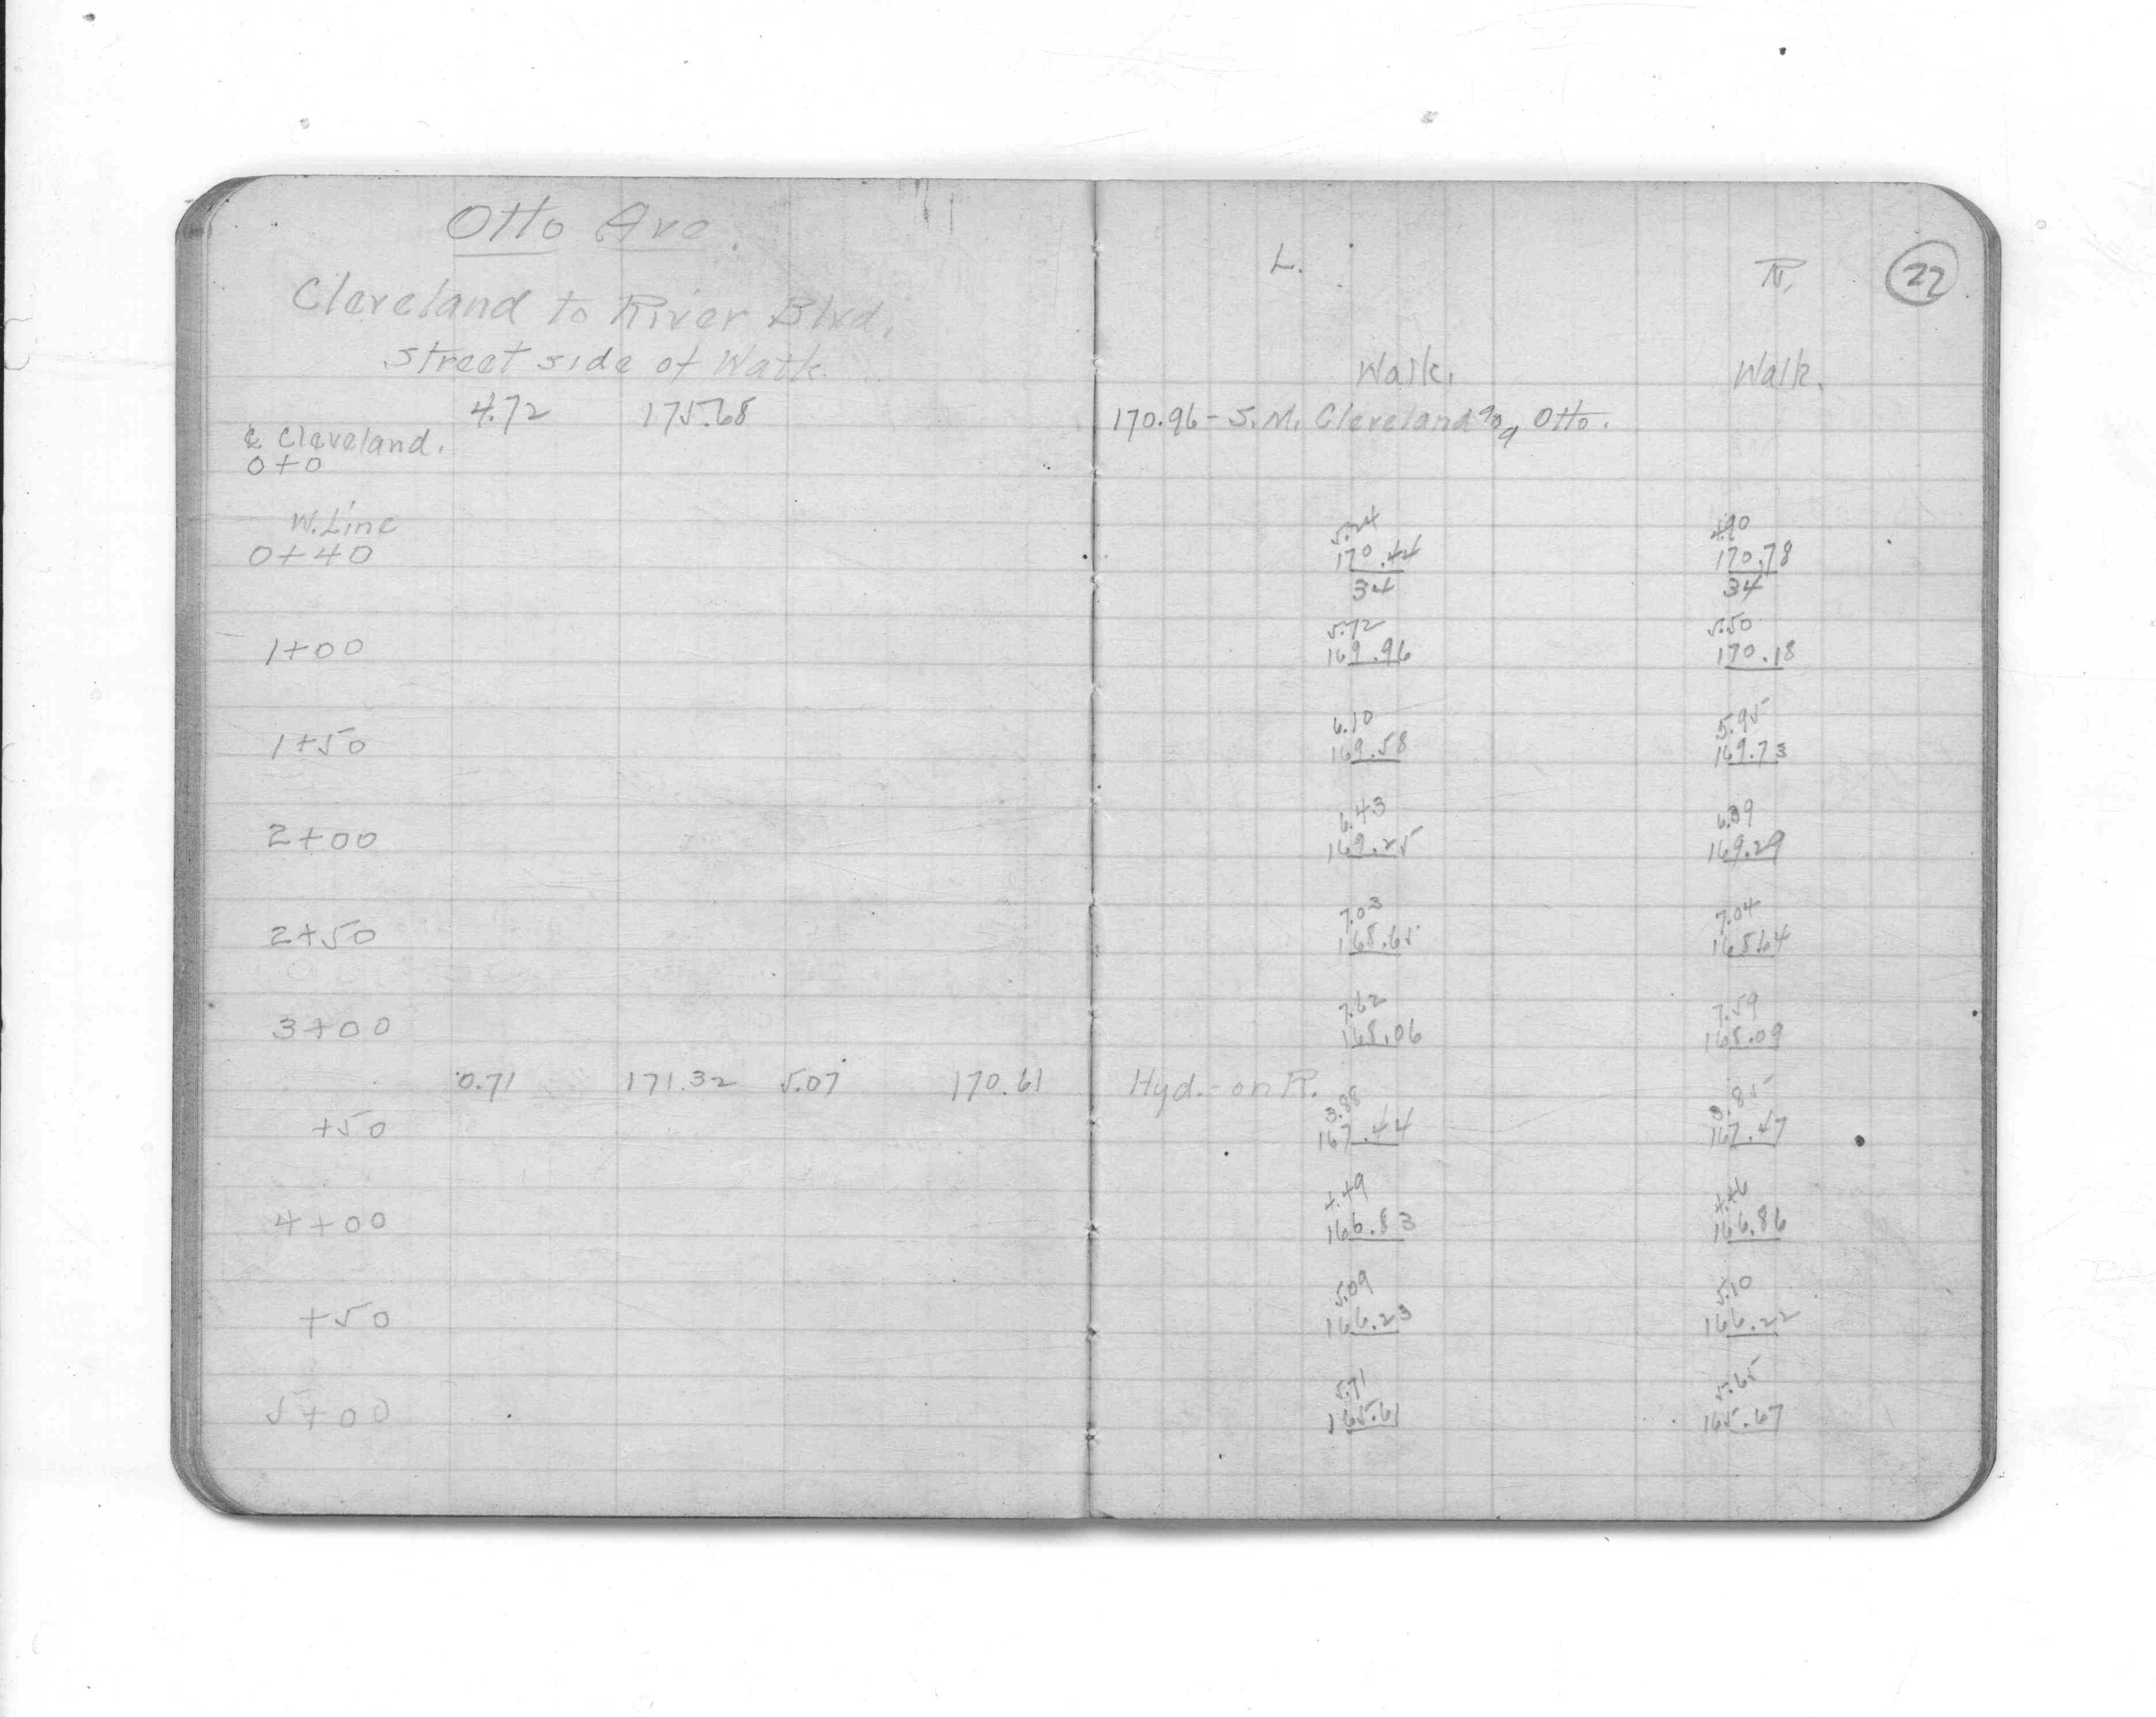 Otto Ave.
Cleveland to River Blvd.
Street side of Walk
4.72 175.68
℄ Cleveland.
0+0
W. Line
0+40
1+00
1+50
2+00
2+50
3+00
0.71 171.32 5.07 170.61
+50
4+00
+50
5+00
22
L. R.
Walk. Walk.
170.96 - S.M. Cleveland Otto.
5.24 4.90
170.44 170.78
34 34
5.72 5.50
169.96 170.18
6.10 5.95
169.58 169.73
6.43 6.39
169.25 169.29
7.03 7.04
168.65 168.64
7.62 7.59
168.06 168.09
Hyd. - on R.
3.88 3.85
167.44 167.47
4.49 4.46
166.83 166.86
5.09 5.10
166.23 166.22
5.71 5.65
165.61 165.67